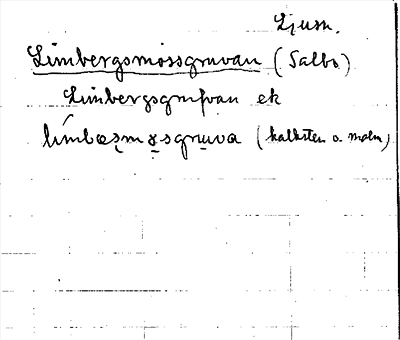 Ljusn.
Limbergsmossgruvan (Salbo)
Limbergsgrufvan ek
límbœsm ɤsgruva (kalksten o. malm)